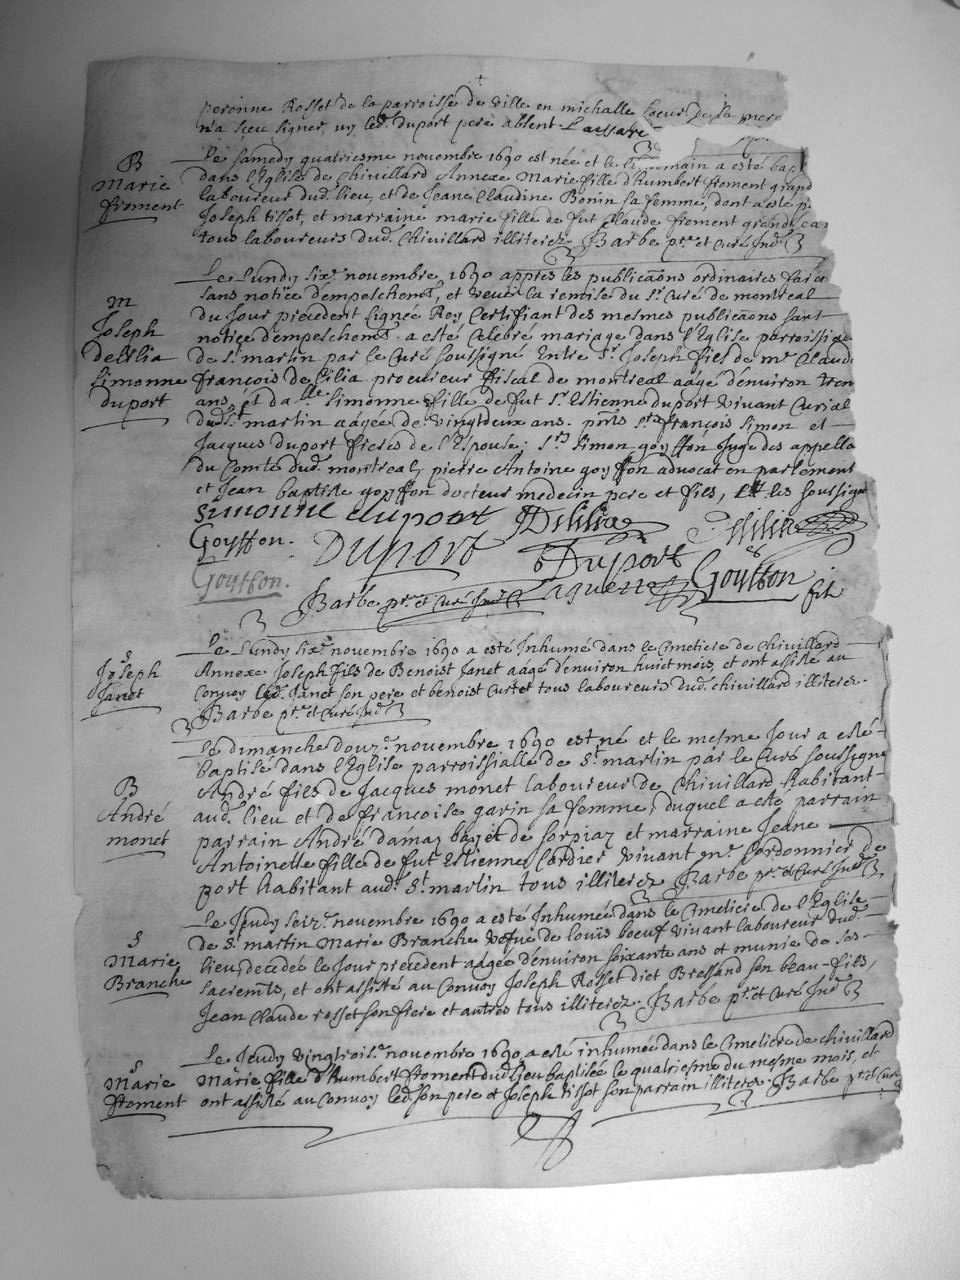 peronne Rosset de la parroisse de ville en michaille soeur de la mere
n'a sçeu signer, ny led. duport pere absent
B
Marie
froment
Le samedy quatriesme novembre 1690 est née et le lendemain a esté bap
dans l'Eglise de Chivillard Annexe Marie fille d'humbert froment grand
laboureur dud. lieu, et de Jeane Claudine Bonin sa femme, dont a esté p
Joseph tissot, et marraine marie fille de fut Claude froment grand
tous laboureurs dud. Chivillard illiterez Barbe ptre et Curé
M
Joseph
deLilia
Simonne
duport
Le Lundy sixe. novembre 1690 appres les publicaõns ordinaires
sans notice d'empeschemt, et veu la remise du Sr. Curé de montreal
du Jour precedent signée Rey Certifiant des mesmes publicaõns sans
notice d'empeschemt. a esté Celebré mariage dans l'Eglise parroissia
de St. martin par le Curé soussigné Entre Sr. Joseph fils de mre Claude
françois de Lilia procureur fiscal de montreal aagé d'environ tren
ans, et da lle Simonne fille de fut Sr. Estienne duport vivant Curial
dud. St. martin aagée de vingtdeux ans. pnts Srs. françois Simon et
Jacques duport freres de l'Espouse; Srs Simon goyffon Juge des appella
du Comté dud. montreal, pierre Antoine goyffon advocat en parlement
et Jean baptiste goyffon docteur medecin pere et fils, les soussigné
Simonne duport DeLilia DeLilia
Goyffon. Duport Duport
Goyffon. Goyffon fils
Barbe ptre et Curé
S
Joseph
Janet
Le Lundy sixe. novembre 1690 a esté Inhumé dans le Cimetiere de Chivillard
Annexe Joseph fils de Benoist Janet aagé d'environ huict mois, et ont assisté au
Convoy led. Janet son pere et benoist Curtet tous laboureurs dud. chivillard illiterez.
Barbe ptre et Curé
B
André
monet
Le dimanche douze. novembre 1690 est né et le mesme Jour a esté
baptisé dans l'Eglise parroissialle de St. martin par le Curé soussigné
André fils de Jacques monet laboureur de Chivillard habitant
aud. lieu et de françoise garin sa femme, duquel a esté parrain
parrain André damaz de sorpiaz et marraine Jeane
Antoinette fille de fut Estienne Cordier vivant mre. Cordonnier de
port habitant aud. St. martin tous illiterez Barbe ptre et Curé
S
Marie
Branche
Le Jeudy seize. novembre 1690 a esté Inhumée dans le Cimetiere de l'Eglise
de St. martin Marie Branche vefue de louïs boeuf vivant laboureur dud.
lieu, decedée le Jour precedent aagée d'environ soixante ans et munie de ses
sacremts, et ont assisté au Convoy Joseph Rosset dict Bressand son beau-fils,
Jean Claude rosset son frere et autres tous illiterez. Barbe ptre et Curé
S
Marie
froment
Le Jeudy vingtroise. novembre 1690 a esté inhumée dans le Cimetiere de chivillard
Marie fille d'humbert froment dud. lieu baptisée le quatriesme du mesme mois, et
ont assisté au Convoy led. son pere et Joseph tissot son parrain illiterez. Barbe ptre et Curé